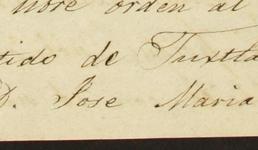 nore orden al
tido de Tuxtla
D. Jose Maria